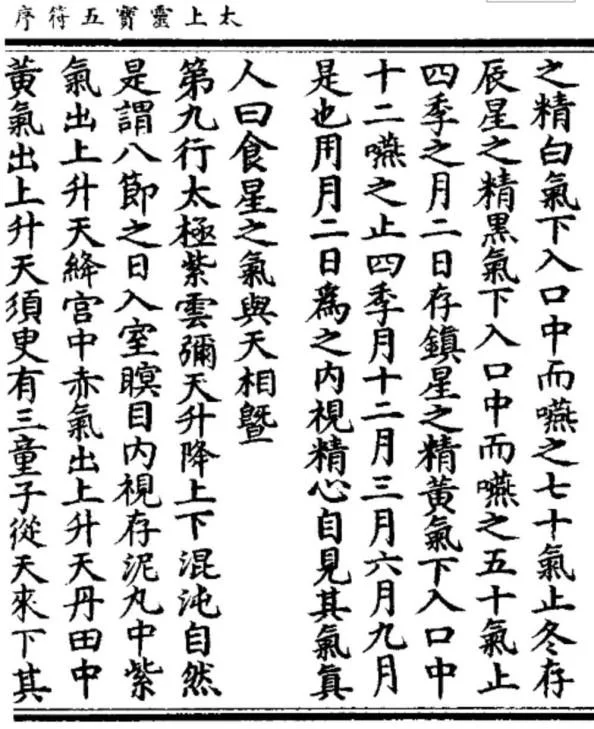 太上靈寶五符序
之精白氣下入口中而嚥之七十氣止冬存
辰星之精黑氣下入口中而嚥之五十氣止
四季之月二日存鎮星之精黃氣下入口中
十二嚥之止四季月十二月三月六月九月
是也用月二日爲之內視精心自見其氣眞
人曰食星之氣與天相曁
第九行太極紫雲彌天升降上下混沌自然
是謂八節之日入室瞑目內視存泥丸中紫
氣出上升天絳宮中赤氣出上升天丹田中
黃氣出上升天須臾有三童子從天來下其